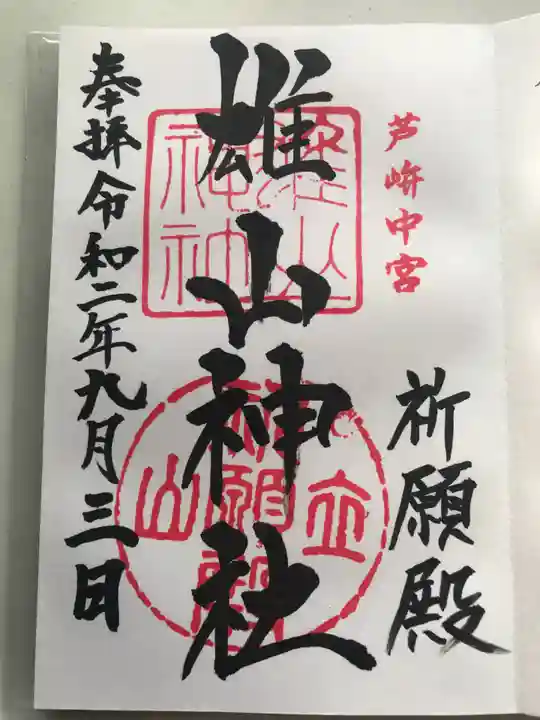 芦峅中宮
祈願殿
雄山神社
雄山神社
立山
祈願殿
奉拝令和二年九月三日